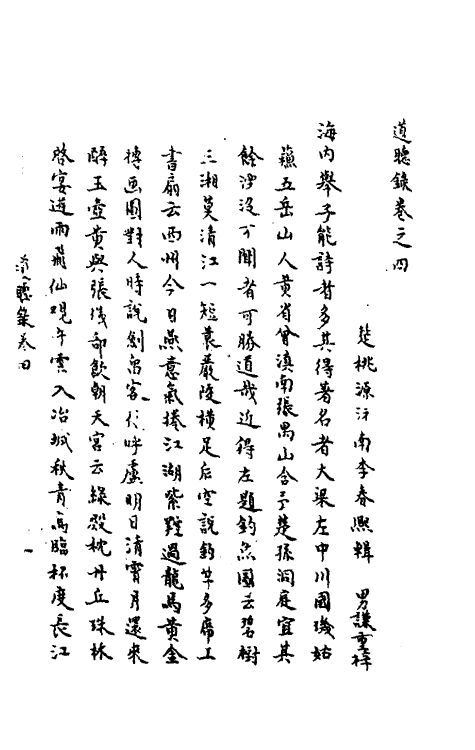 道聽錄卷之四
楚桃源沅南李春熙輯　男謙重梓
海内舉子能詩者多其得著名者大梁左中川國璣姑
蘇五岳山人黄省曾滇南張禺山含予楚孫洞庭宜其
餘浮沒不聞者可勝道哉近得左題釣魚圖云碧樹
三湘莫清江一短蓑嚴陵横足后空說釣竿多席上
書扇云西州今日燕意氣捲江湖紫難過龍馬黄金
摶画圖對人時說劍留客代呼盧明日清霄月還來
醉玉壺黄與張幾部飲朝天宮云綠殿枕丹丘珠林
啓宴遊雨飛仙觀午雲入冶城秋青高臨杯度長江
道聽錄卷四
一